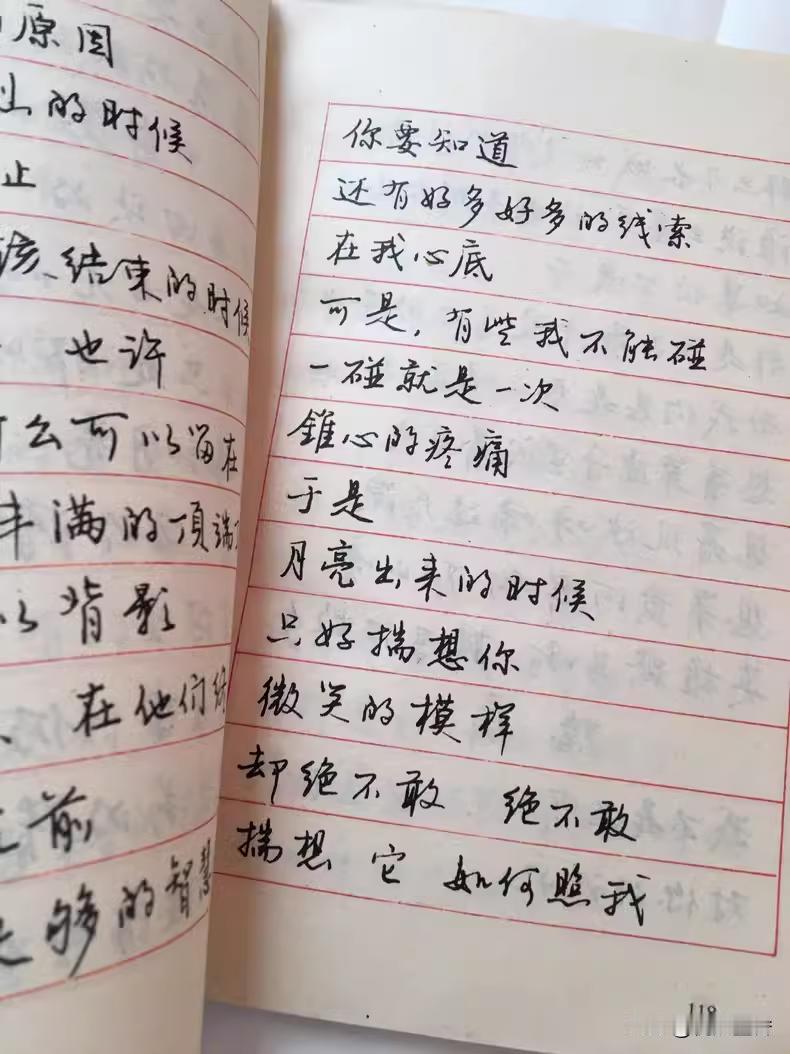 原因
的时候
止
该、结束的时候
也许
么可以留在
丰满的顶端
以背影
、在他们
前
够的智慧
你要知道
还有好多好多的线索
在我心底
可是，有些我不能碰
一碰就是一次
锥心的疼痛
于是
月亮出来的时候
只好揣想你
微笑的模样
却绝不敢 绝不敢
揣想 它 如何照我
118